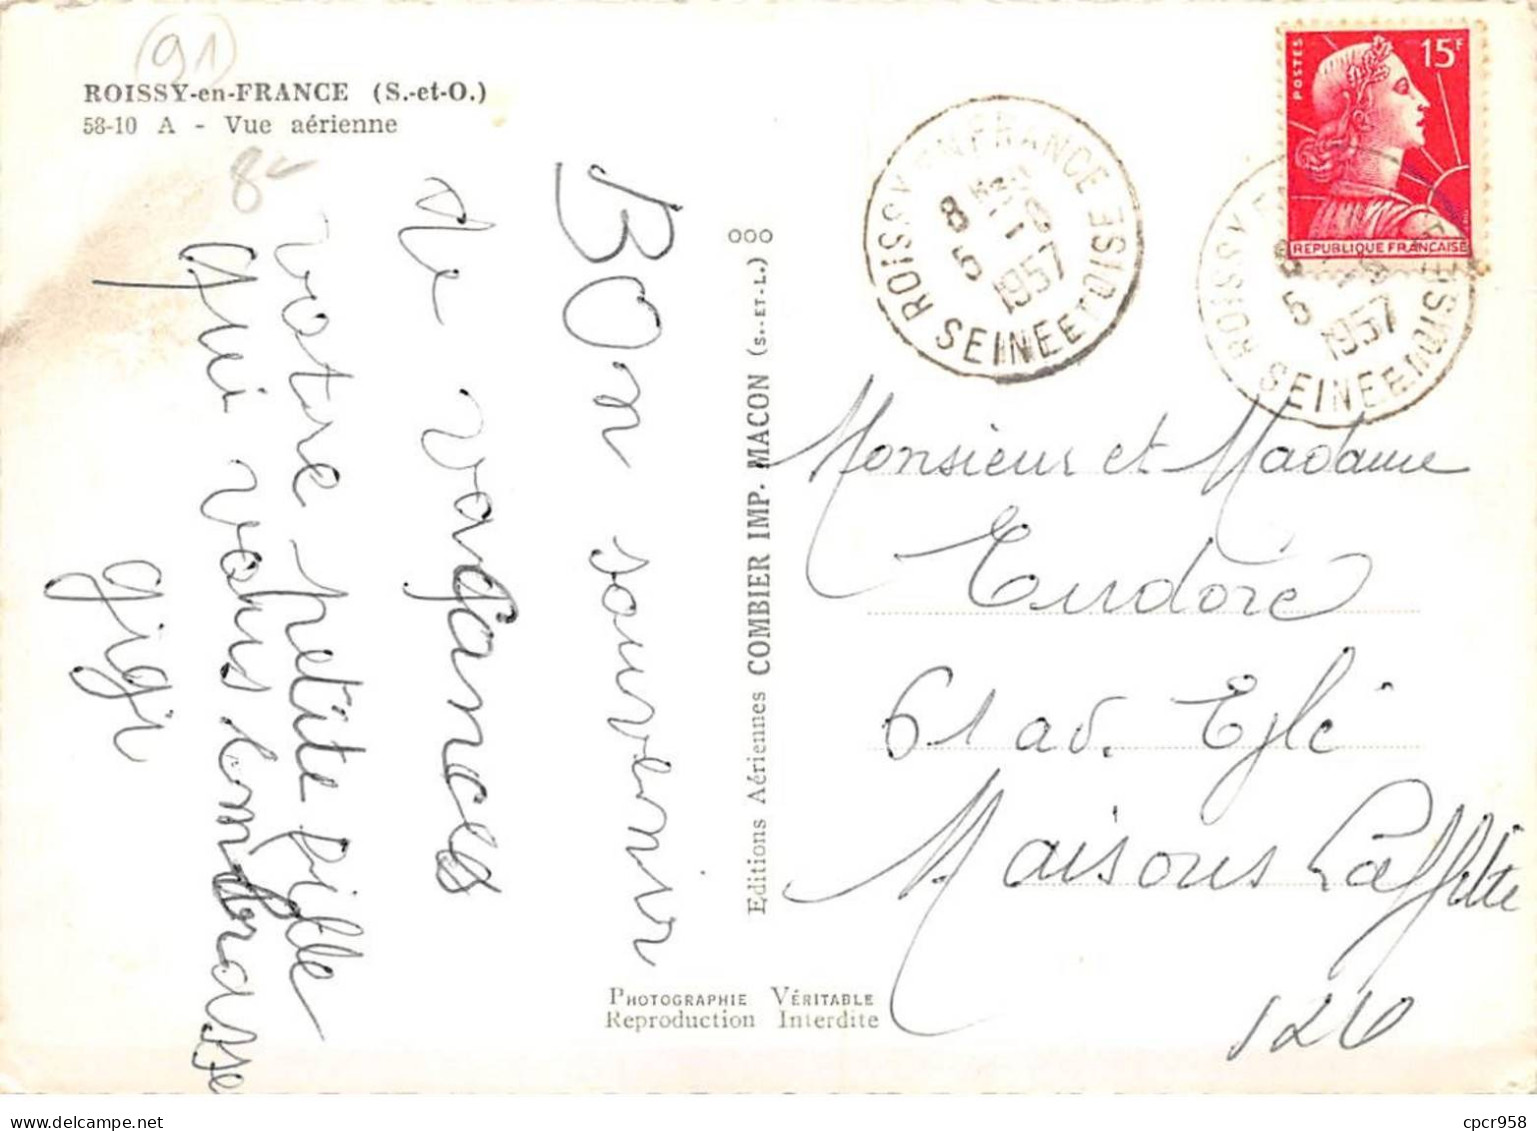 91
ROISSY-en-FRANCE (S.-et-O.)
58-10 A - Vue aérienne
8-
BOn souvenir
de vacances
votre petite fille
qui vous embrasse
gigi
ooo
Editions Aériennes COMBIER IMP. MACON (S.-ET-L.)
PHOTOGRAPHIE VÉRITABLE
Reproduction Interdite
ROISSY EN FRANCE
8
5
1957
SEINE ET OISE
POSTES
15F
REPUBLIQUE FRANÇAISE
ROISSY
5
1957
SEINE ET OISE
Monsieur et Madame
61 av. Eglé
Maisons Laffitte
cpcr958